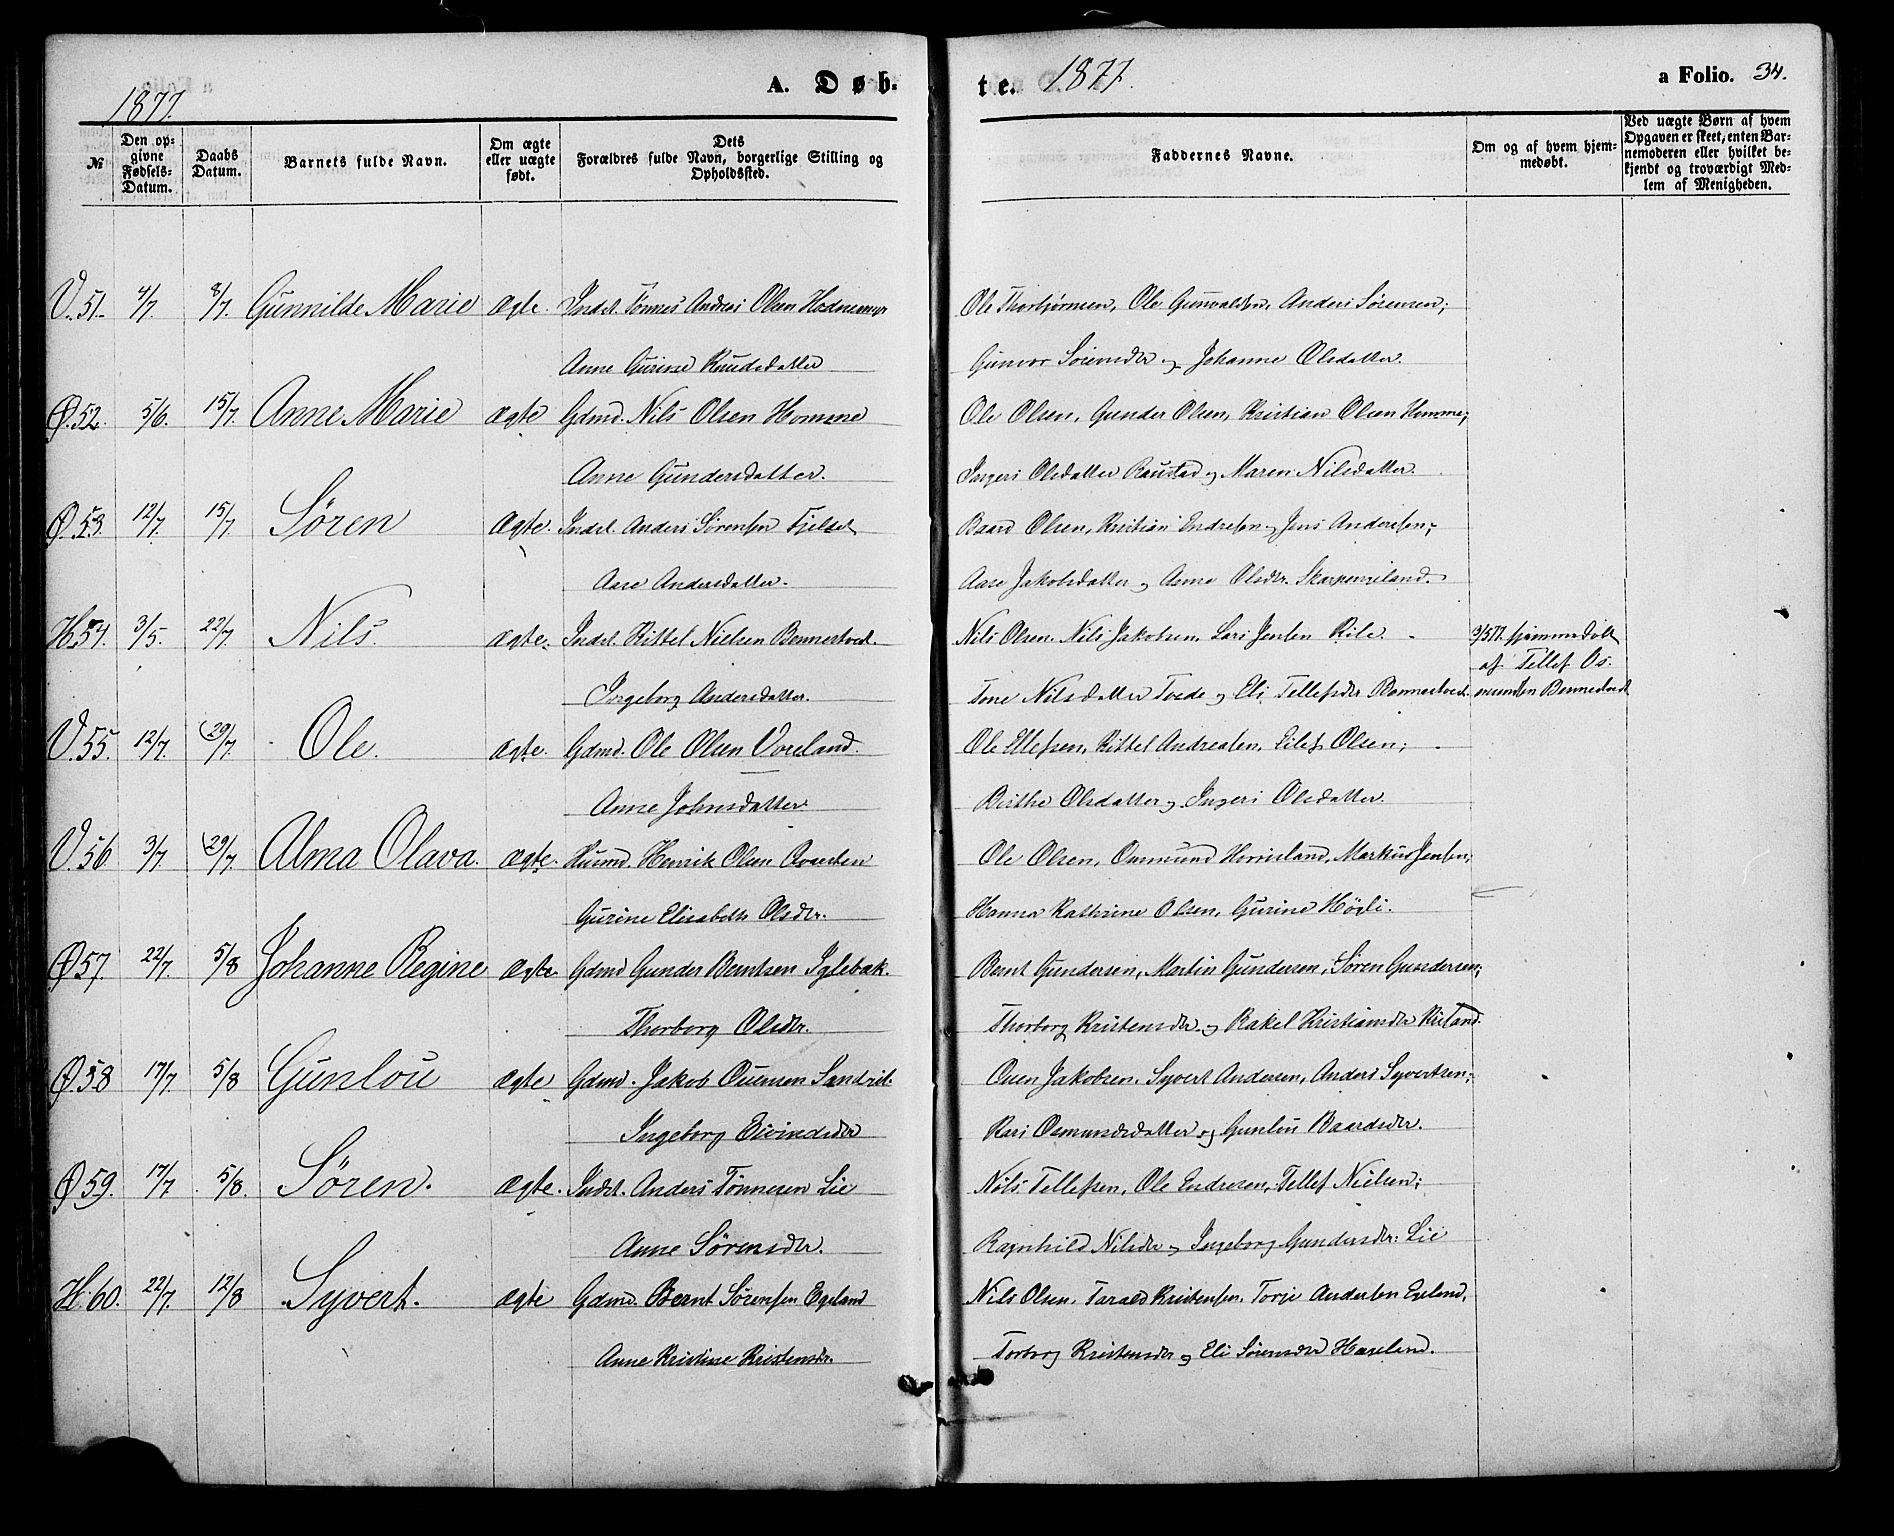 1877.
A. Døb-
te.
1877.
a Folio. 34.
№
Den op-
givne
Fødsels-
Datum.
Daabs
Datum.
Barnets fulde Navn.
Om ægte
eller uægte
født.
Dets
Forældres fulde Navn, borgerlige Stilling og
Opholdssted.
Faddernes Navne.
Om og af hvem hjem-
medøbt.
Ved uægte Børn af hvem
Opgaven er skeet, enten Bar-
nemoderen eller hvilket be-
kjendt og troværdigt Med-
lem af Menigheden.
V. 51. 4/7. 8/7. Gunnilde Marie ægte. Indst. Tønnes Andreas Olsen Hodnemyr Ole Thorbjørnsen, Ole Gunvaldsen, Anders Sørensen;
Anne Gurine Knudsdatter Gunvor Sørensdtr og Johanne Olsdatter.
Ø. 52. 5/6. 15/7. Anne Marie ægte Gdmd. Nils Olsen Homme Ole Olsen, Gunder Olsen, Kristian Olsen Homme;
Anne Gundersdatter. Ingeri Olsdatter Raustad og Maren Nilsdatter.
Ø. 53. 12/7. 15/7 Søren ægte. Indst. Anders Sørensen Fjelset Baard Olsen, Kristian Endresen og Jens Andersen;
Aase Andersdatter. Aase Jakobsdatter og Anne Olsdtr.
H. 54. 3/5. 22/7 Nils. ægte. Indst. Kittel Nielsen Bennestvedt. Nils Olsen, Nils Jakobsen, Lars Jensen Kile 3/5 77. hjemmedøbt
af Tellef Os-
Ingeborg Andersdatter. Tone Nilsdatter Tvede og Eli Tellefsdtr Bennestvedt. mundsen Bennestvedt
V. 55. 12/7. 29/7. Ole. ægte. Gdmd. Ole Olsen Voreland. Ole Ellefsen, Kittel Andreasen, Eilef Olsen;
Anne Johnsdatter. Birthe Olsdatter og Ingeri Olsdatter.
V. 56 3/7 29/7. Alma Olava. ægte. Husmd. Henrik Olsen Ole Olsen, Osmund Markus Jensen;
Gurine Elisabeth Olsdtr. Hanna Kathrine Olsen, Gurine Høgli.
Ø 57. 22/7. 5/8 Johanne Regine ægte Gdmd Gunder Berntsen Iglebæk. Bernt Gundersen, Martin Gundersen, Søren Gundersen;
Thorborg Olsdtr. Thorborg Kristensdtr og Rakel Kristiansdtr
Ø. 58 17/7 5/8 Gunlou ægte Gdmd. Jakob Ouensen Ouen Jakobsen, Syvert Andersen, Anders Syvertsen;
Ingeborg Eivindsdtr Kari Osmundsdatter og Gunlou Baardsdtr.
Ø 59. 17/7 5/8. Søren. ægte. Indst. Anders Tønnesen Lie Nils Tellefsen, Ole Endresen, Tellef Nielsen;
Anne Sørensdtr. Ragnhild Nilsdtr og Ingeborg Gundersdtr. Lie
H. 60. 22/7. 12/8 Syvert. ægte Gdmd. Bernt Sørensen Egeland Nils Olsen, Tarald Kristensen, Torje Andersen Egeland,
Anne Kristine Kristensdtr. Torborg Kristensdtr og Eli Sørensdtr Haseland.